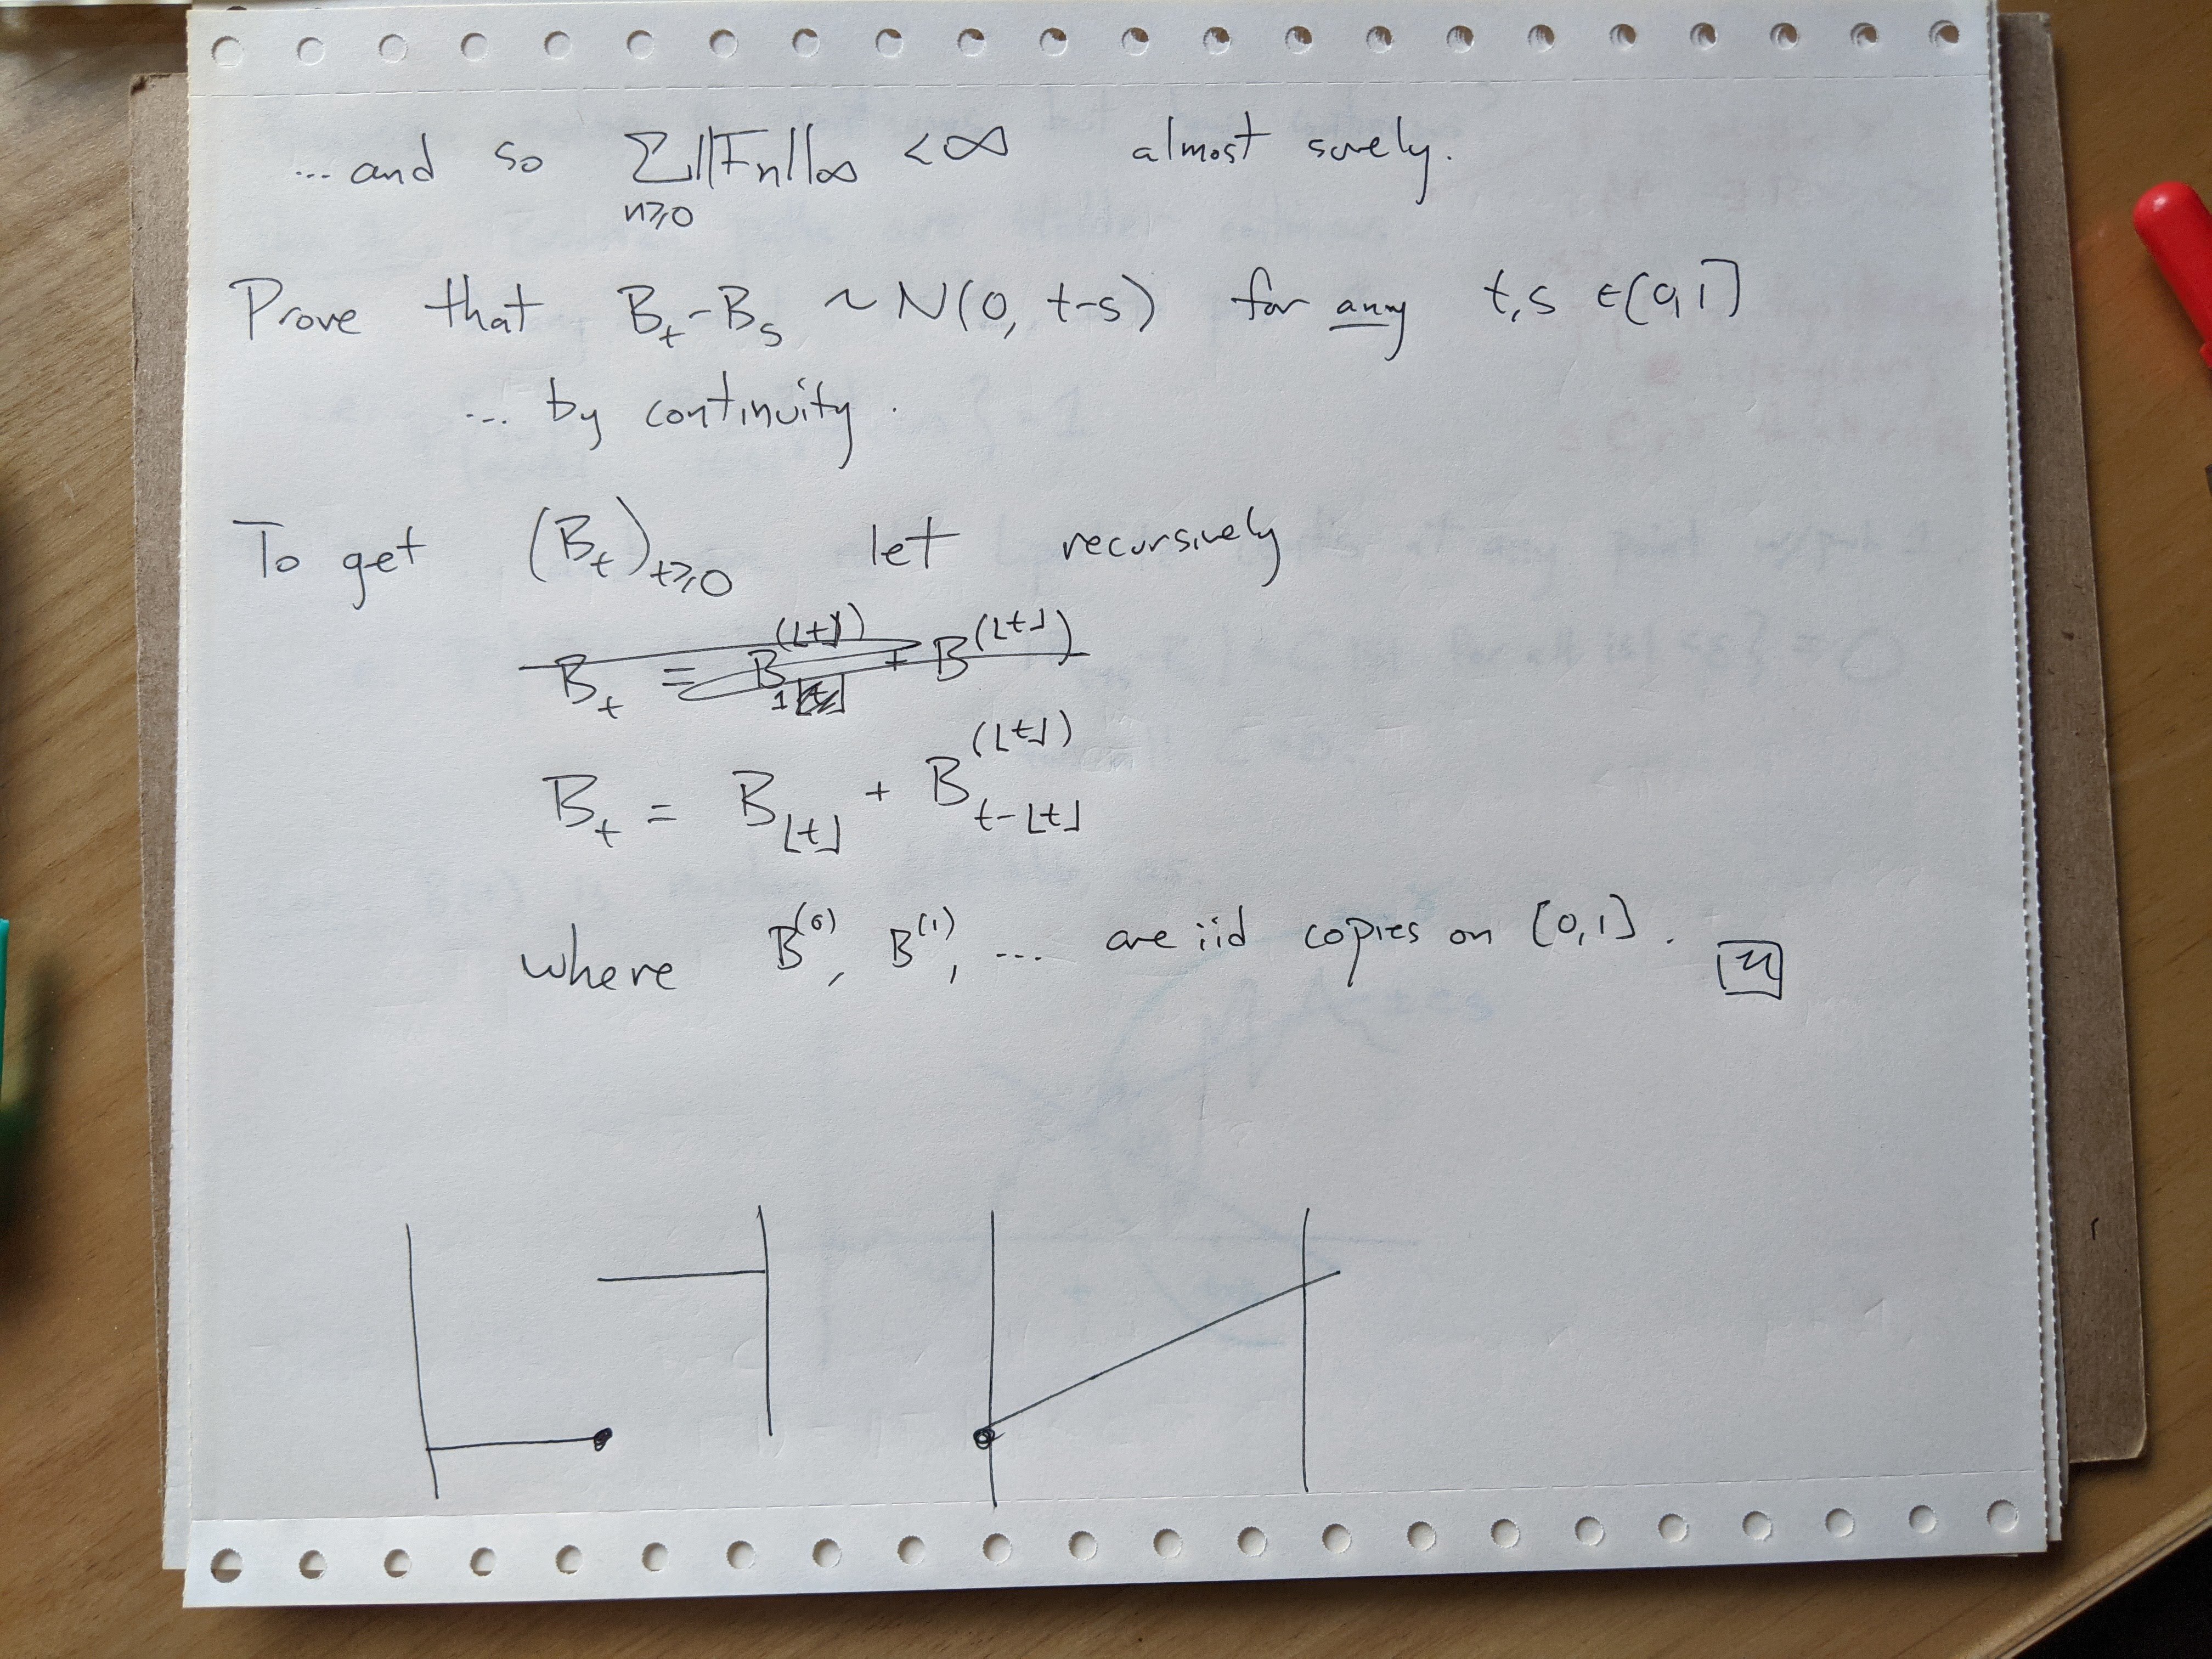 ... and so ∑ₙ≥₀ ||Fₙ||∞ < ∞ almost surely.
Prove that Bₜ - Bₛ ~ N(0, t-s) for any t,s ∈ [0,1]
... by continuity.
To get (Bₜ)ₜ≥₀ let recursively
Bₜ = B_⌊t⌋ + B^(⌊t⌋)_{t-⌊t⌋}
where B⁽⁰⁾, B⁽¹⁾, ... are iid copies on [0,1].